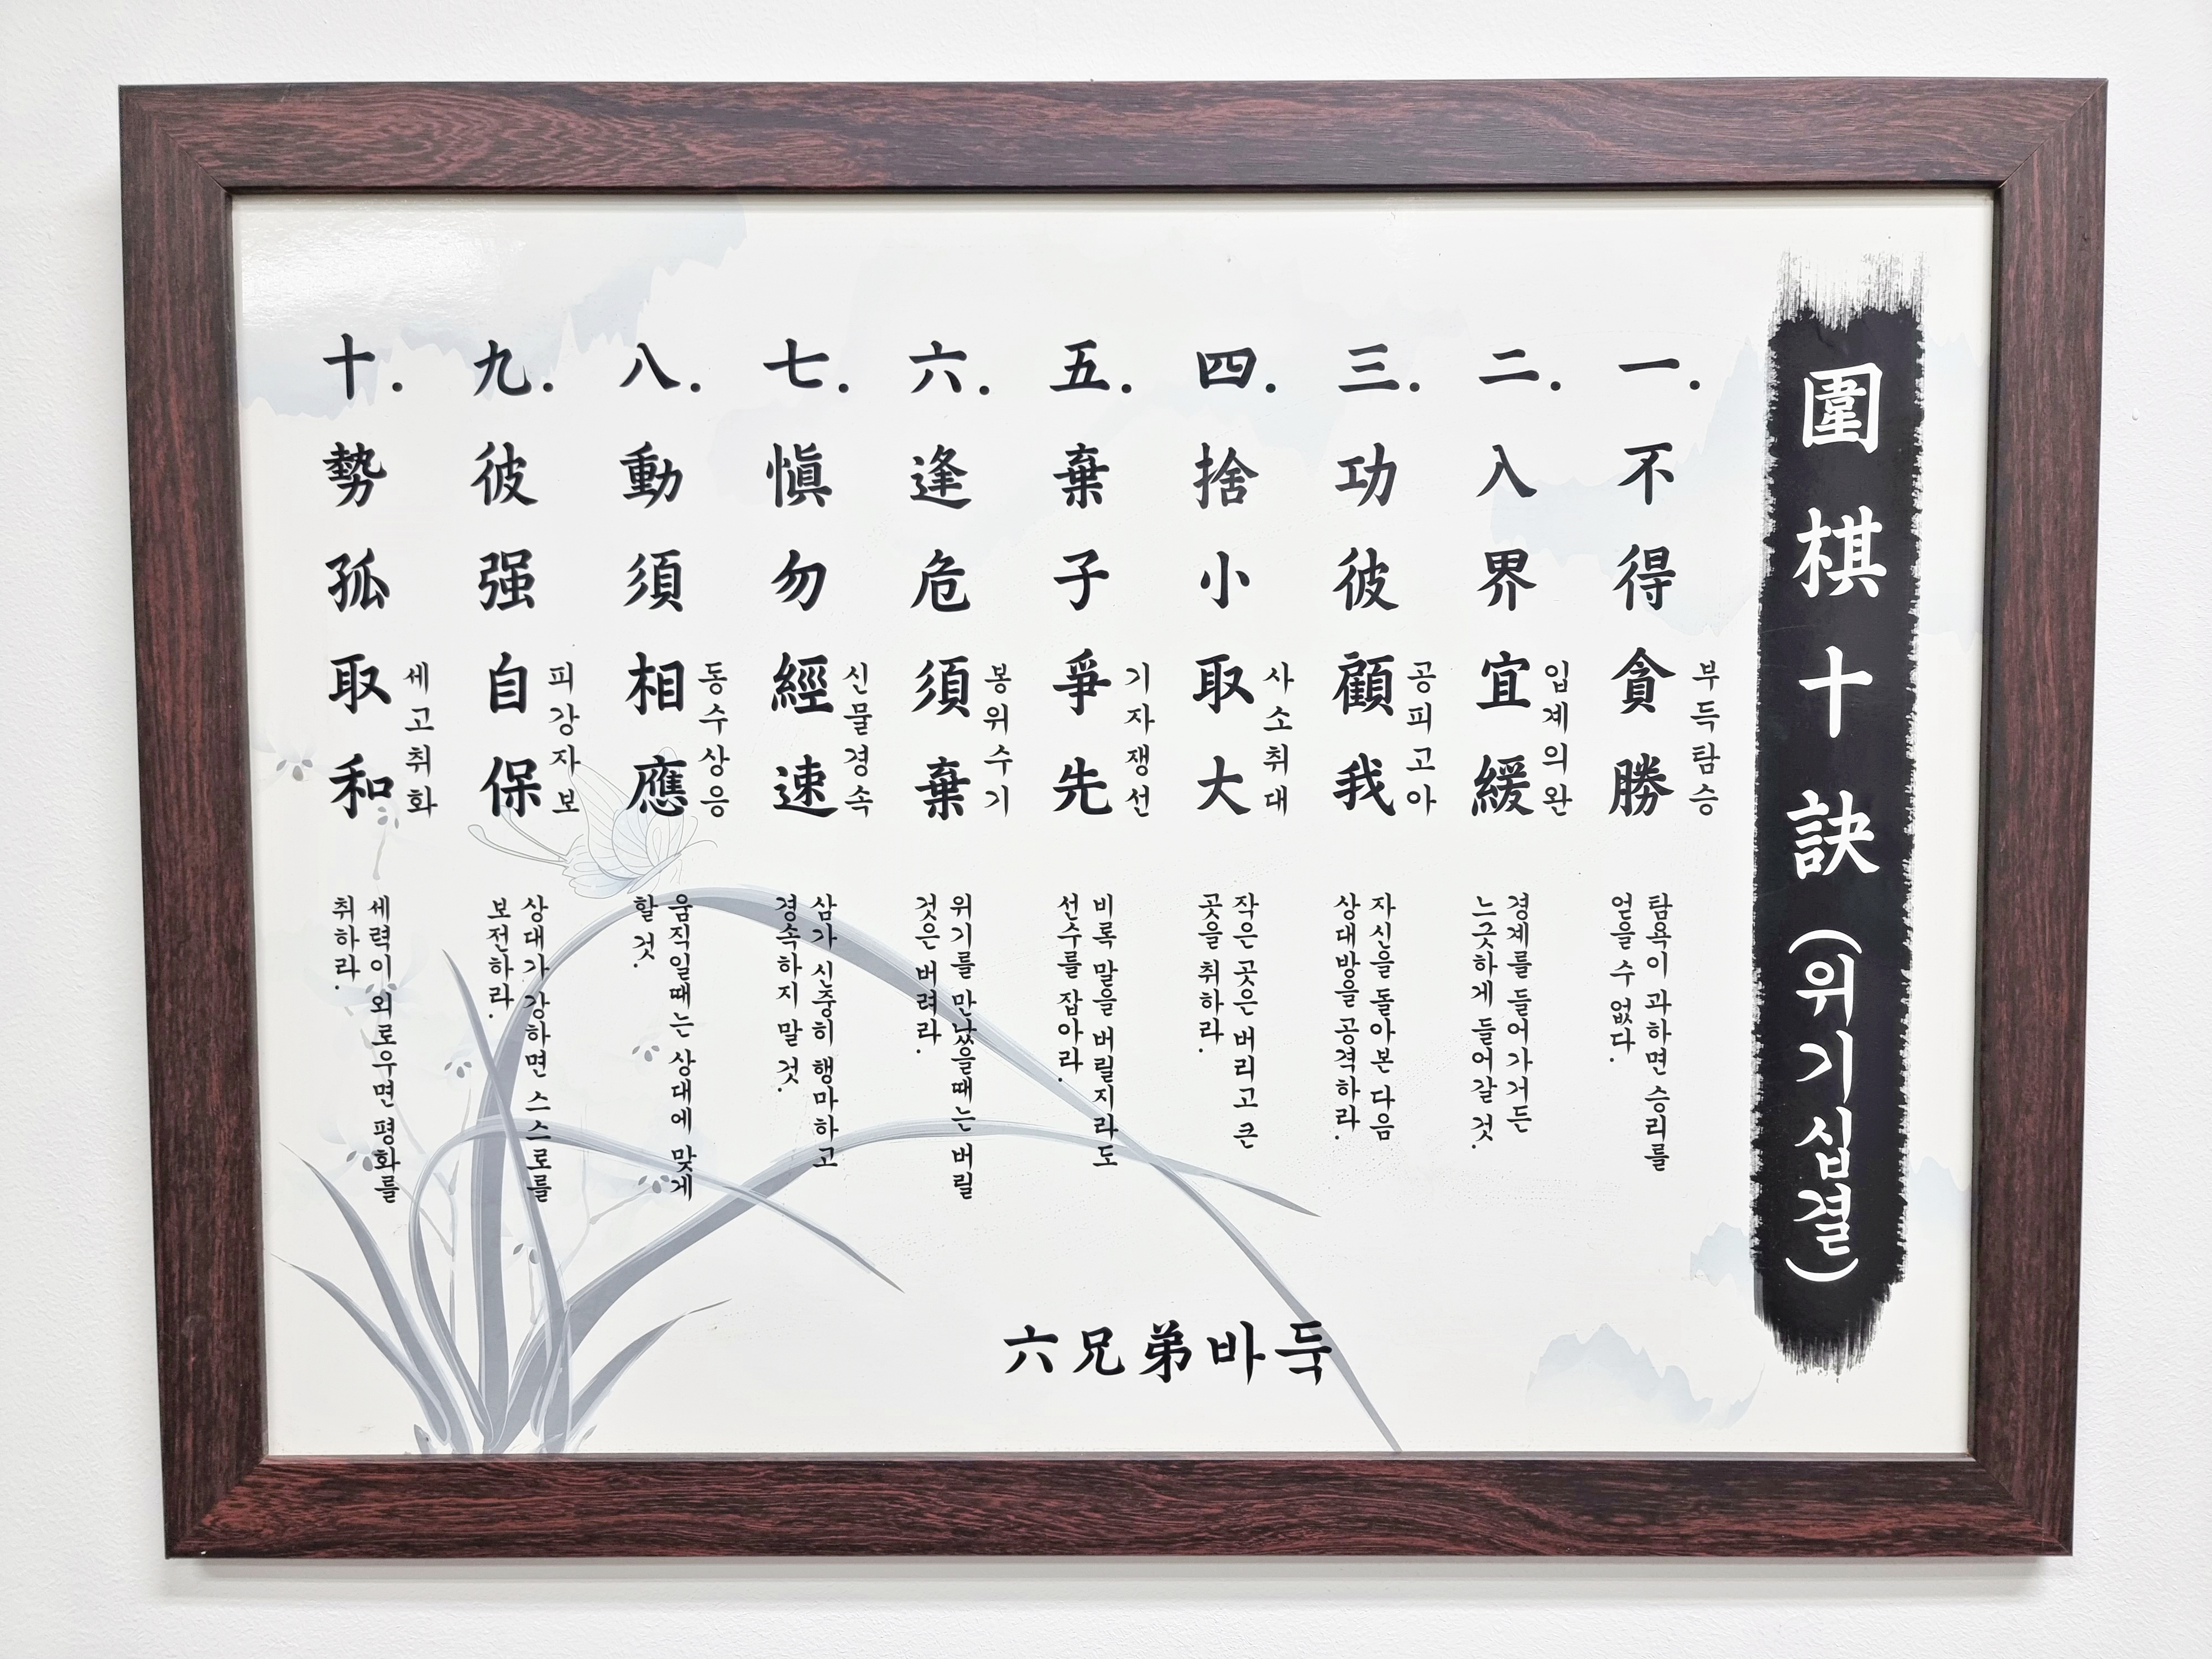 圍棋十訣(위기십결)
一. 不得貪勝
부득탐승
탐욕이 과하면 승리를
얻을 수 없다.
二. 入界宜緩
입계의완
경계를 들어가거든
느긋하게 들어갈 것.
三. 功彼顧我
공피고아
자신을 돌아본 다음
상대방을 공격하라.
四. 捨小取大
사소취대
작은 곳은 버리고 큰
곳을 취하라.
五. 棄子爭先
기자쟁선
비록 말을 버릴지라도
선수를 잡아라.
六. 逢危須棄
봉위수기
위기를 만났을때는 버릴
것은 버려라.
七. 愼勿經速
신물경속
삼가 신중히 행마하고
경속하지 말 것.
八. 動須相應
동수상응
움직일때는 상대에 맞게
할 것.
九. 彼强自保
피강자보
상대가 강하면 스스로를
보전하라.
十. 勢孤取和
세고취화
세력이 외로우면 평화를
취하라.
六兄弟바둑